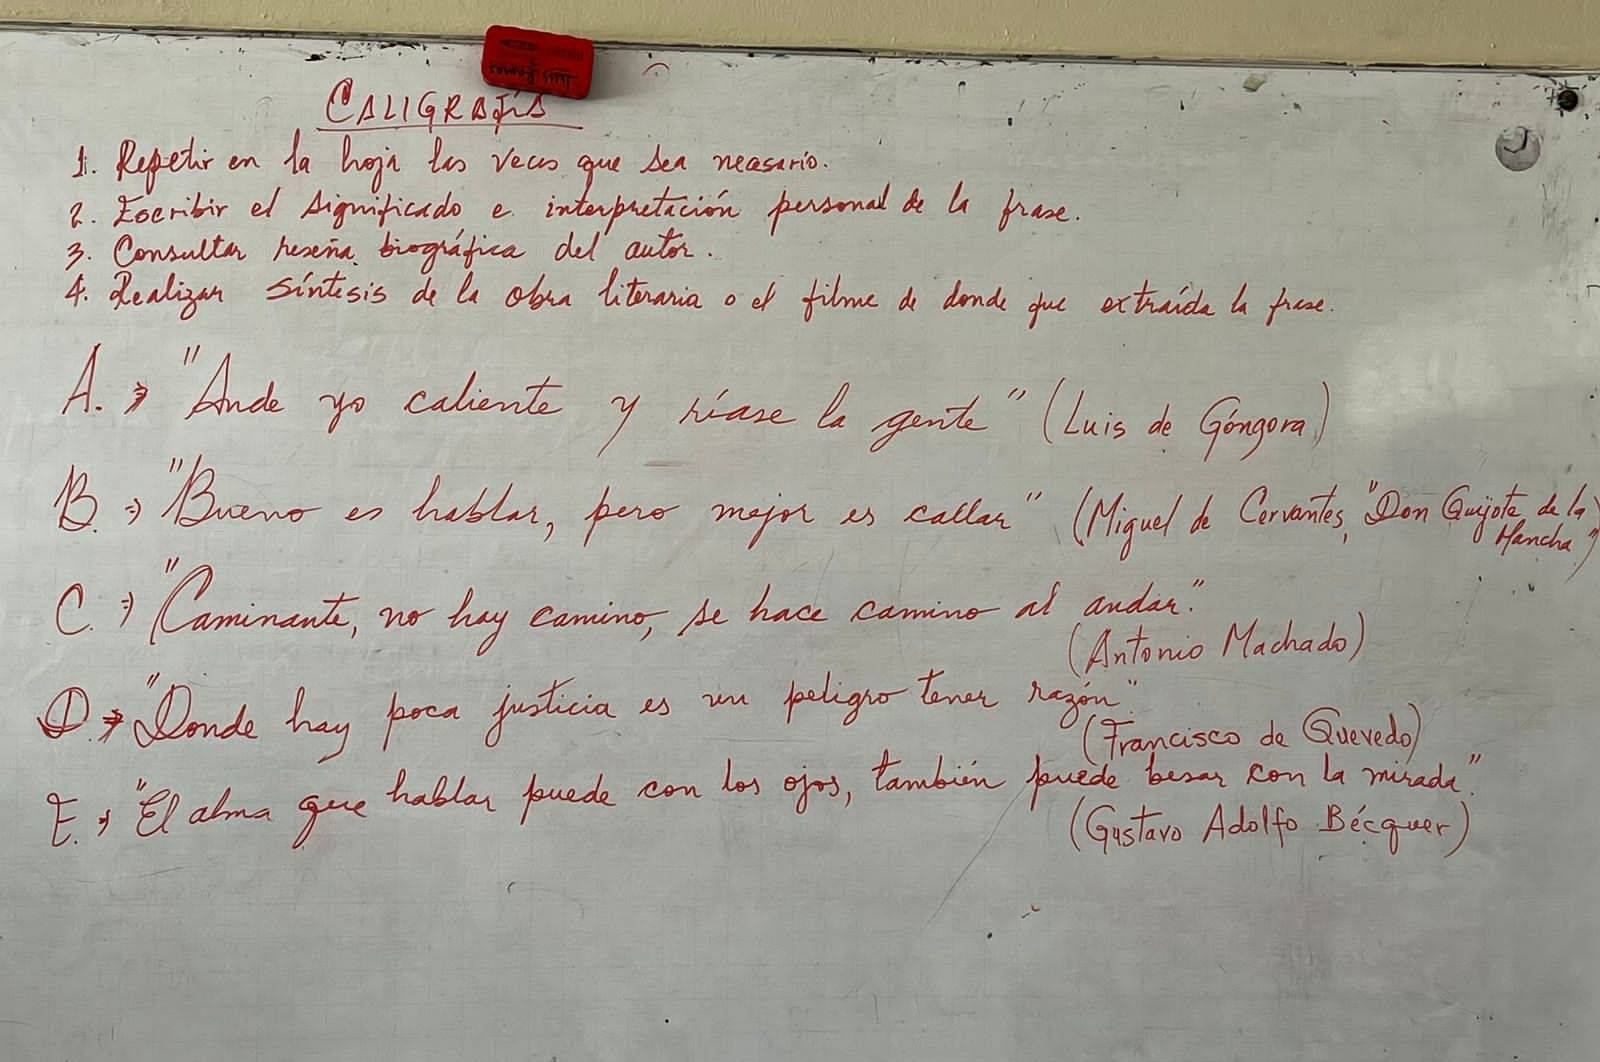 CALIGRAFÍA
1. Repetir en la hoja las veces que sea necesario.
2. Escribir el significado e interpretación personal de la frase.
3. Consultar reseña biográfica del autor.
4. Realizar síntesis de la obra literaria o el filme de donde fue extraída la frase.
A. → "Ande yo caliente y ríase la gente" (Luis de Góngora)
B. → "Bueno es hablar, pero mejor es callar" (Miguel de Cervantes, "Don Quijote de la
Mancha")
C. → "Caminante, no hay camino, se hace camino al andar."
(Antonio Machado)
D. → "Donde hay poca justicia es un peligro tener razón".
(Francisco de Quevedo)
E. → "El alma que hablar puede con los ojos, también puede besar con la mirada".
(Gustavo Adolfo Bécquer)